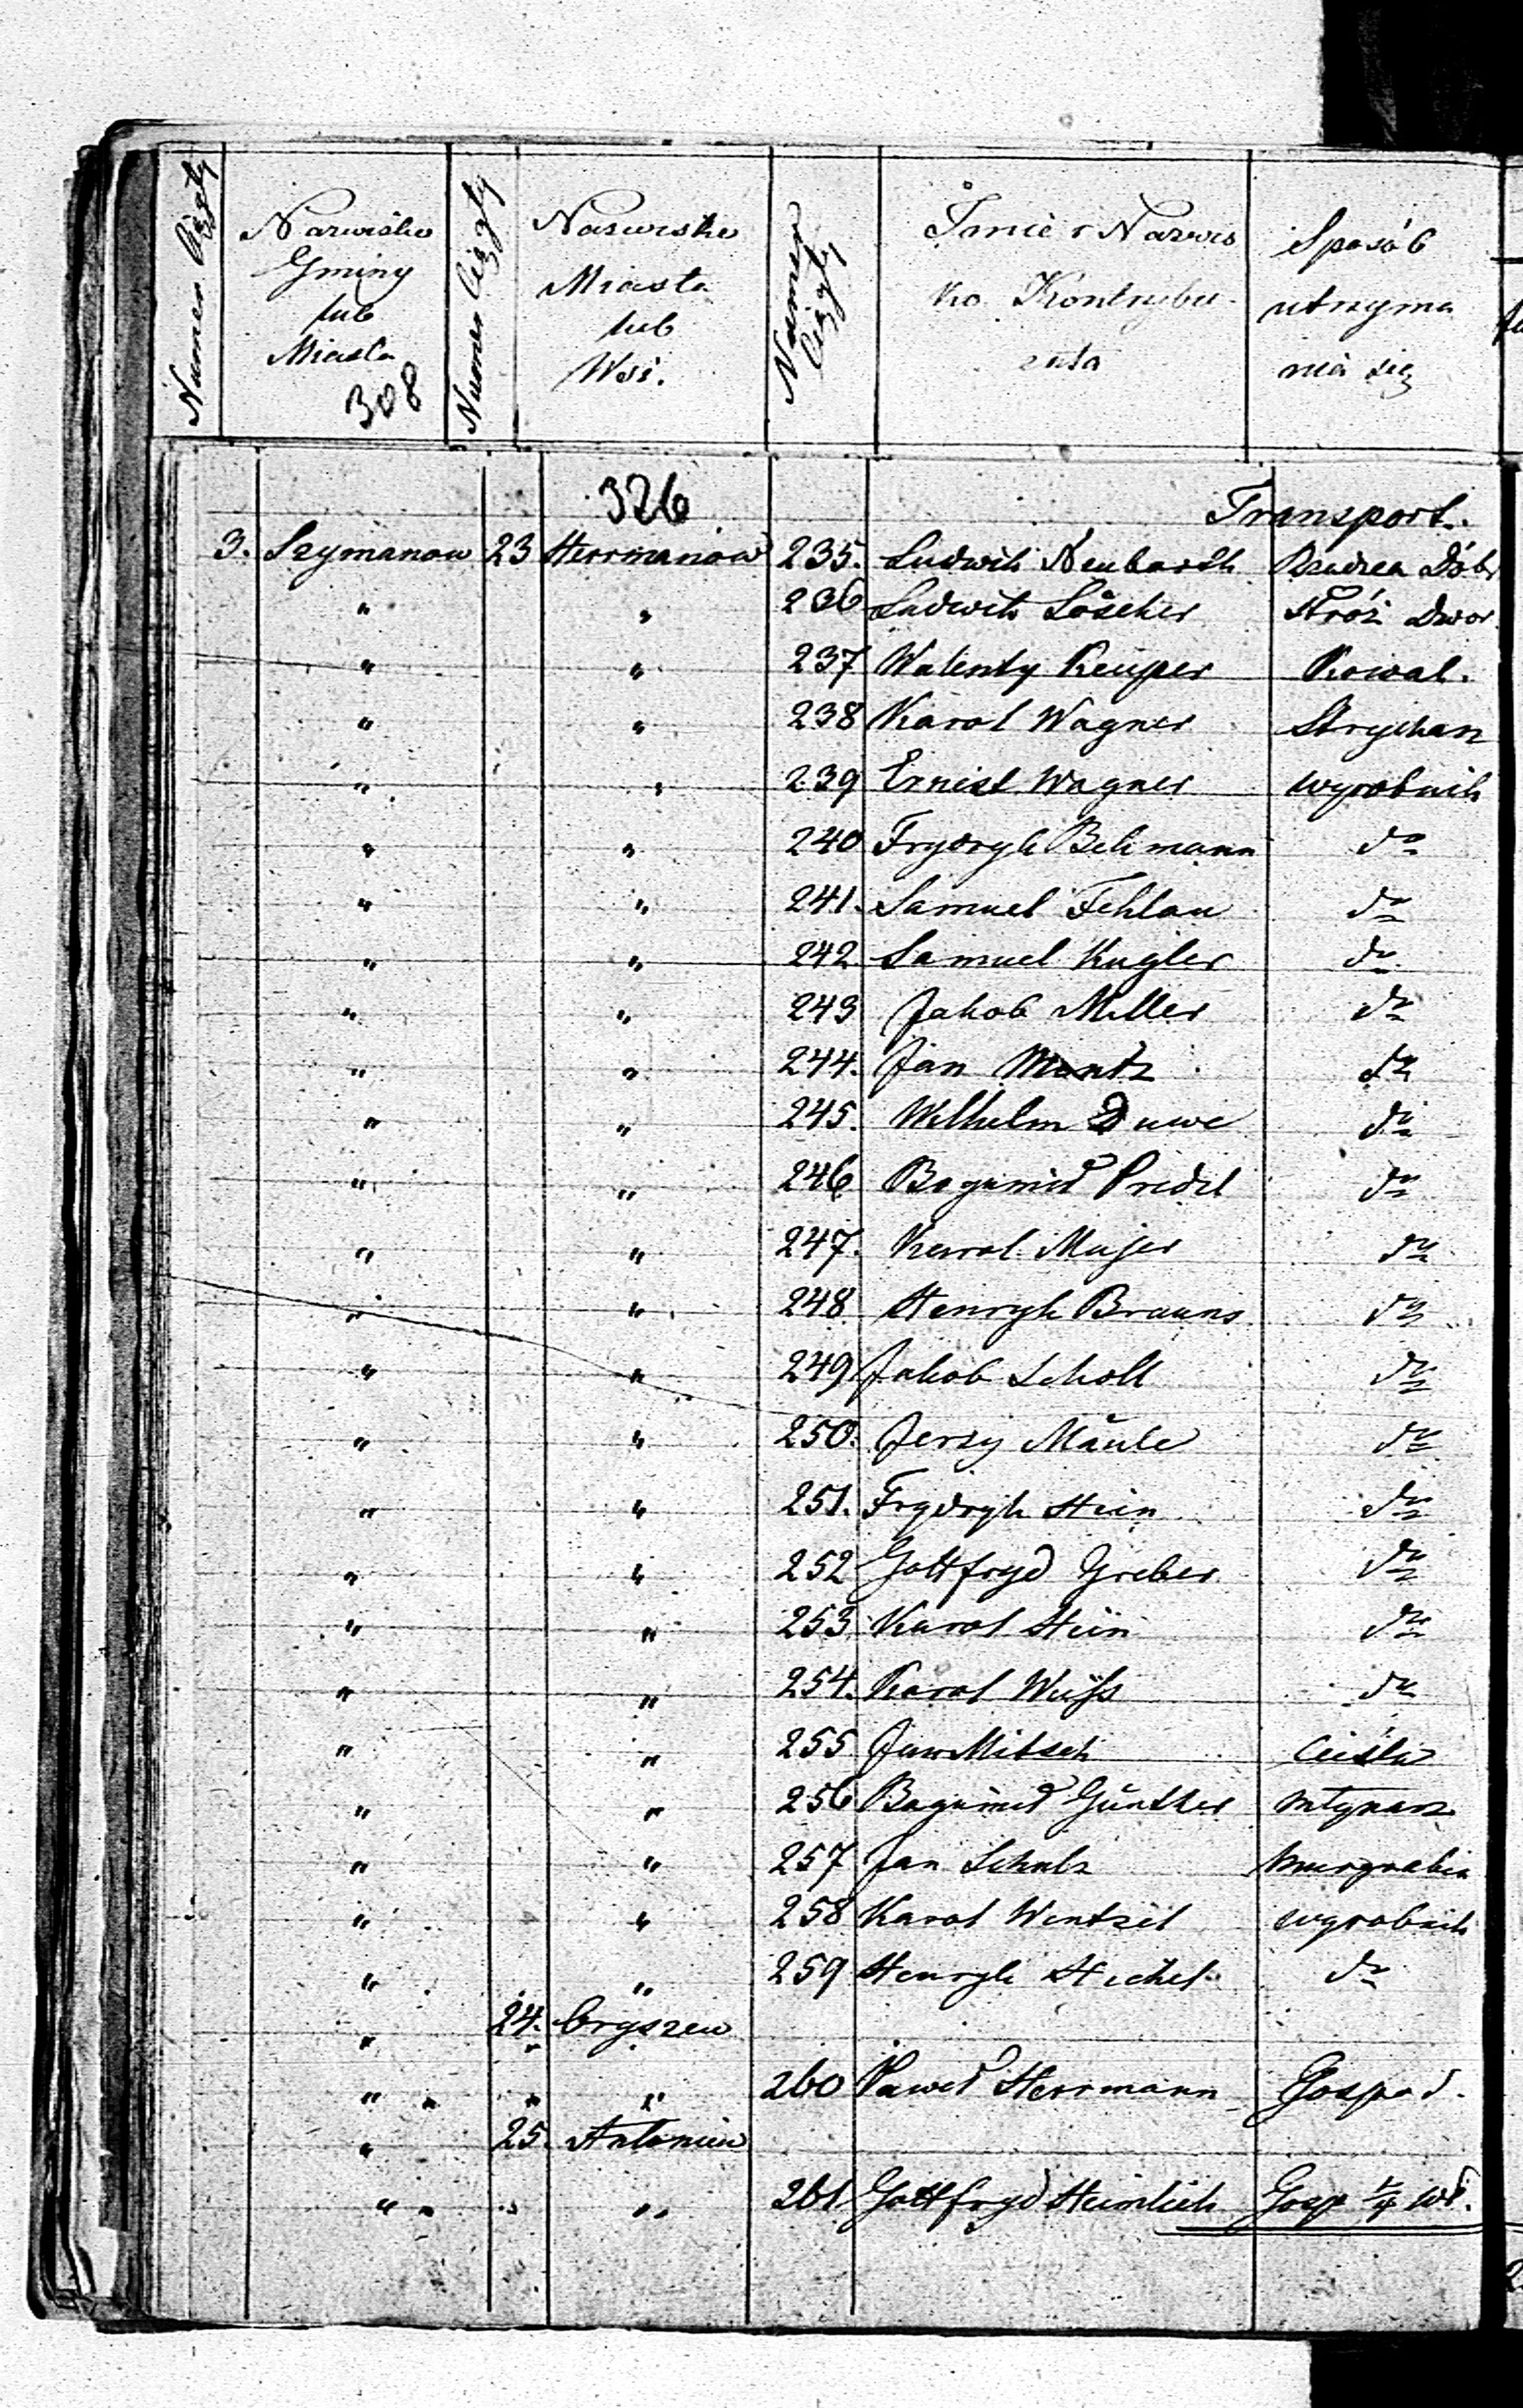 Numer bieżący
Nazwisko Gminy lub Miasta
308
Numer bieżący
Nazwisko Miasta lub Wsi.
Numer bieżący
Imie i Nazwisko Kontrybuenta
Sposób utrzymania się
326
Transport.
3. Szymanow 23 Herrmanow 235. Ludwik Neubarth Rendzca Dóbr
" " 236 Ludwik Löscher Stróż Dwor.
" " 237 Walenty Keiper Kowal.
" " 238 Karol Wagner Strycharz
" " 239 Ernist Wagner wyrobnik
" " 240 Frydryk Behmann do
" " 241. Samuel Fehlau do
" " 242 Samuel Kugler do
" " 243 Jakob Miller do
" " 244. Jan Mantz do
" " 245. Wilhelm Duwe do
" " 246 Bogumił Predel do
" " 247. Karol Majer do
" " 248 Henryk Brauns do
" " 249 Jakob Scholl do
" " 250. Jerzy Mäule do
" " 251. Frydryk Hein do
" " 252 Gottfryd Greber do
" " 253 Karol Hein do
" " 254. Karol Weiss do
" " 255 Jan Mitsch Cieśla
" " 256 Bogumił Günther młynarz
" " 257 Jan Schulz Murgrabia
" " 258 Karol Wentzel wyrobnik
" " 259 Henryk Hechel do
" 24. Oryszew
" " " 260 Paweł Herrmann Gospod.
" 25. Antoniew
" " " 261 Gottfryd Heimlich Gosp ¼ wł.